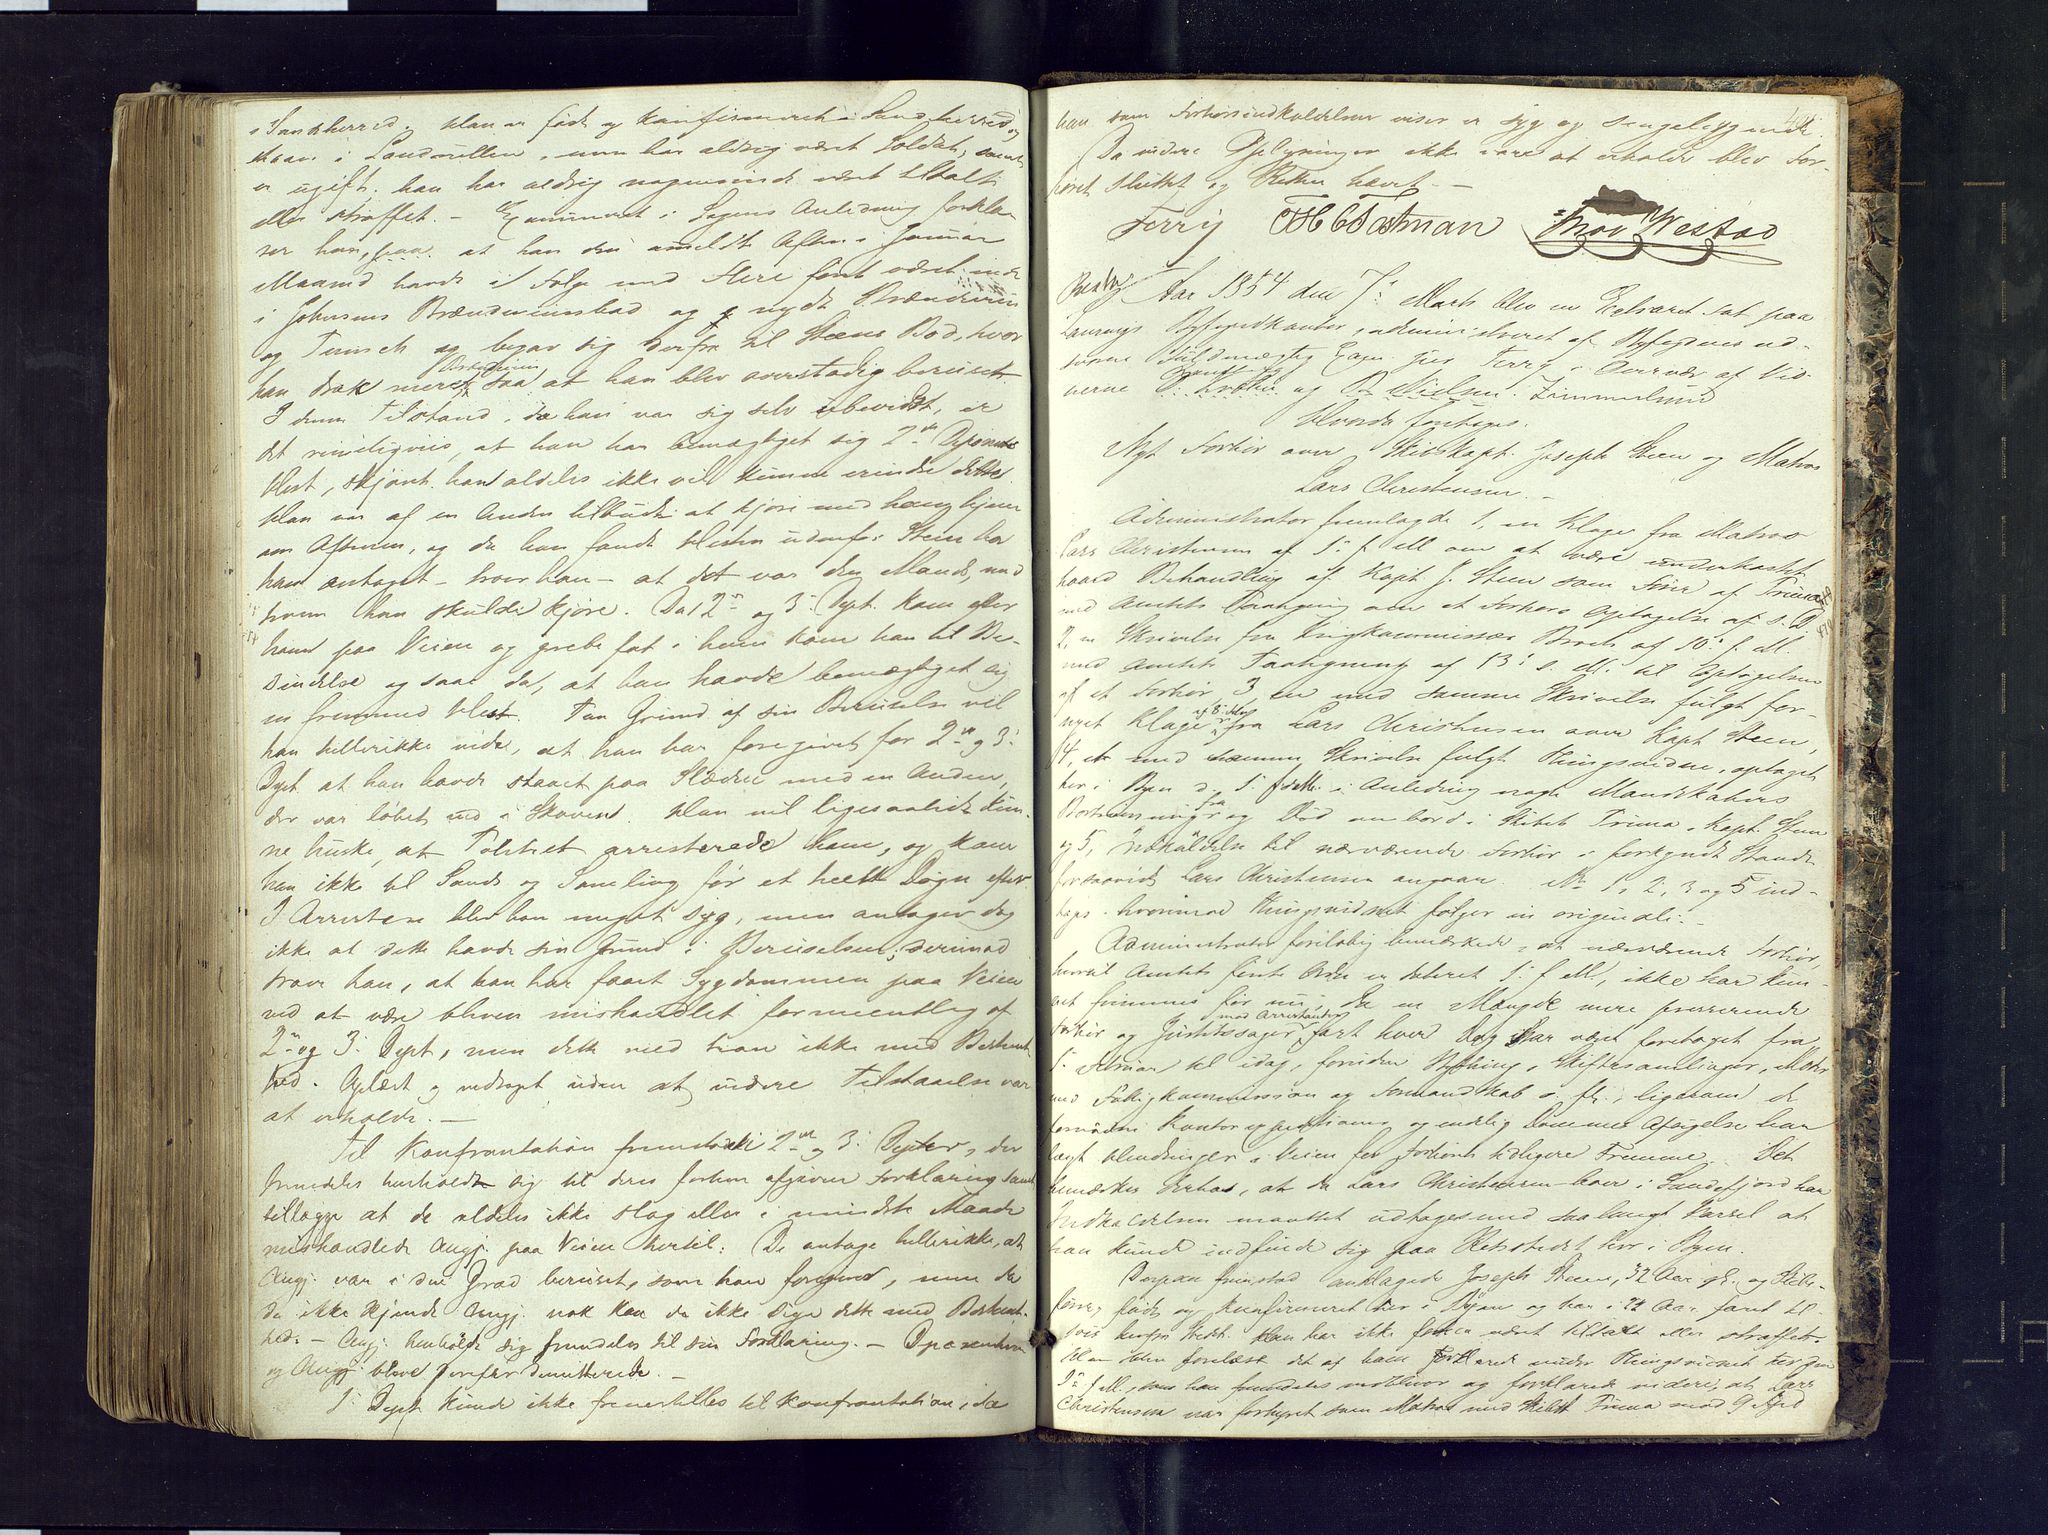 i Sandeherred. Han er født og konfirmeret i Sandeherred og
staar i Landrullen, men har aldrig været Soldat, samt
er ugift. han har aldrig nogensinde været tiltalt
eller straffet. – Examineret i Sagens Anledning forkla-
rer han, paa at han den anmeldte Aften i Januar
Maaned havde i Følge med Flere først været inde
i Johnsens Brændevinsbod og nydt Brændeviin
og Punsch og begav sig derfra til Steens Bod, hvor
han drak mere Brændeviin saa at han blev overstadig beruset.
I denne Tilstand, da han var sig selv ubevidst, er
det rimeligviis, at han har bemægtiget sig 2den Deponents
Hest, skjønt han aldeles ikke vil kunne erindre dette.
Han var af en Anden tilbudt at kjøre med ham hjem
om Aftenen, og da han fandt Hesten udenfor Steen har
han antaget – troer han – at det var den Mands, med
hvem han skulde kjøre. Da 2den og 3die Dept. kom efter
ham paa Veien og grebe fat i ham kom han til Be-
sindelse og saae da, at han havde bemægtiget sig
en fremmed Hest. Paa Grund af sin Beruselse vil
han hellerikke vide, at han har foregivet for 2den og 3die
Dept. at han havde staaet paa Slæden med en Anden,
der var løbet ind i Skoven. Han vil ligesaalidt kun-
ne huske, at Politiet arresterede ham, og kom
han ikke til Sands og Samling før et heelt Døgn efter.
I Arresten blev han meget syg, men antager dog
ikke at dette havde sin Grund i Beruselsen; derimod
troer han, at han har faaet Sygdommen paa Veien
ved at være bleven mishandlet formentlig af
2den og 3die Dept, men dette veed han ikke med Bestemt-
hed. Oplæst og vedtaget uden at videre Tilstaaelse var
at erholde. –
Til Konfrontation fremstod 2den og 3die Depter, der
fremdeles henholdt sig til deres forhen afgivne Forklaring samt
tillagde at de aldeles ikke slog eller i mindste Maade
mishandlede Angj. paa Veien hertil. De antage hellerikke, at
Angj. var i den Grad beruset, som han foregiver, men da
de ikke kjende Angj. nok kan de ikke sige dette med Bestemt-
hed. – Angj. henholdt sig fremdeles til sin Forklaring. – Deponenterne
og Angj. bleve derefter demitterede. –
1ste Dept kunde ikke fremstilles til Konfrontation, da
han som Forhørsindkaldelsen viser er syg og sengeliggende.
Da videre Oplysninger ikke vare at erholde blev For-
høret sluttet og Retten hævet. –
Ferry Thor Westad
Aar 1854 den 7de Marts blev en Extraret sat paa
Laurvigs Byfogedkontor, administreret af Byfogdens ed-
svorne Fuldmægtig Exam. jur. Ferry i Overvær af Vid-
nerne og Nielsen Zimmerlund
Hvorda foretoges.
Nyt Forhør over Skibskapt. Joseph Steen og Matros
Lars Christensen. –
Administrator fremlagde 1, en Klage fra Matros
Lars Christensen af 5te f. M om at være underkastet
haard Behandling af Kapt. J. Steen som Fører af Prima
med Amtets Paategning om et Forhørs Optagelse af s. D
2, en Skrivelse fra Krigskommissær Broch af 10de f. M.
med Amtets Paategning af 13de s. M. til Optagelsen
af et Forhør, 3, en med samme Skrivelse fulgt for-
nyet Klage fra Lars Christensen over Kapt Steen,
4, et med samme Skrivelse fulgt Thingsvidne, optaget
her i Byen i Anledning nogle Mandskabers
Bortrømning fra og Død ombord i Skibet Prima, Kapt. Steen
og 5, Indkaldelse til nærværende Forhør i forkyndt Stand
forsaavidt Lars Christensen angaaer. No 1, 2, 3 og 5 ind-
tages, hvorimod Thingsvidnet følger in originali. –
Administrator foreløbig bemærkede, at nærværende Forhør,
hvortil Amtets første Ordre er dateret 5te f. M., ikke har kun-
net fremmes før nu, da en Mængde mere presserende
Forhør og Justitssager med Arrestanter fast hver Dag har været foretaget fra
Februar til idag, foruden Bything, Skiftesamlinger, Møder
med Fattigkommission og Formandskab o. fl., ligesom de
fornødne Kontorexpeditioner og endelig Dommes Afsigelse har
lagt Hindringer i Veien for Forhørets tidligere Fremme. Det
bemærkes derhos, at da Lars Christensen boer i Sandefjord har
Indkaldelsen maattet udtages med saa langt Varsel at
han kunde indfinde sig paa Retsstedet her i Byen.
Derpaa fremstod anklagede Joseph Steen, 32 Aar gl. og Skibs-
fører, født og konfirmeret her i Byen og har i Aar faret til
Søes herfra Stedet. Han har ikke forhen været tiltalt eller straffet.
Han blev forelæst det af ham forklarede under Thingsvidnet
f M., som han fremdeles vedbliver og forklarede videre, at Lars
Christensen var forhyret som Matros med Skibet Prima